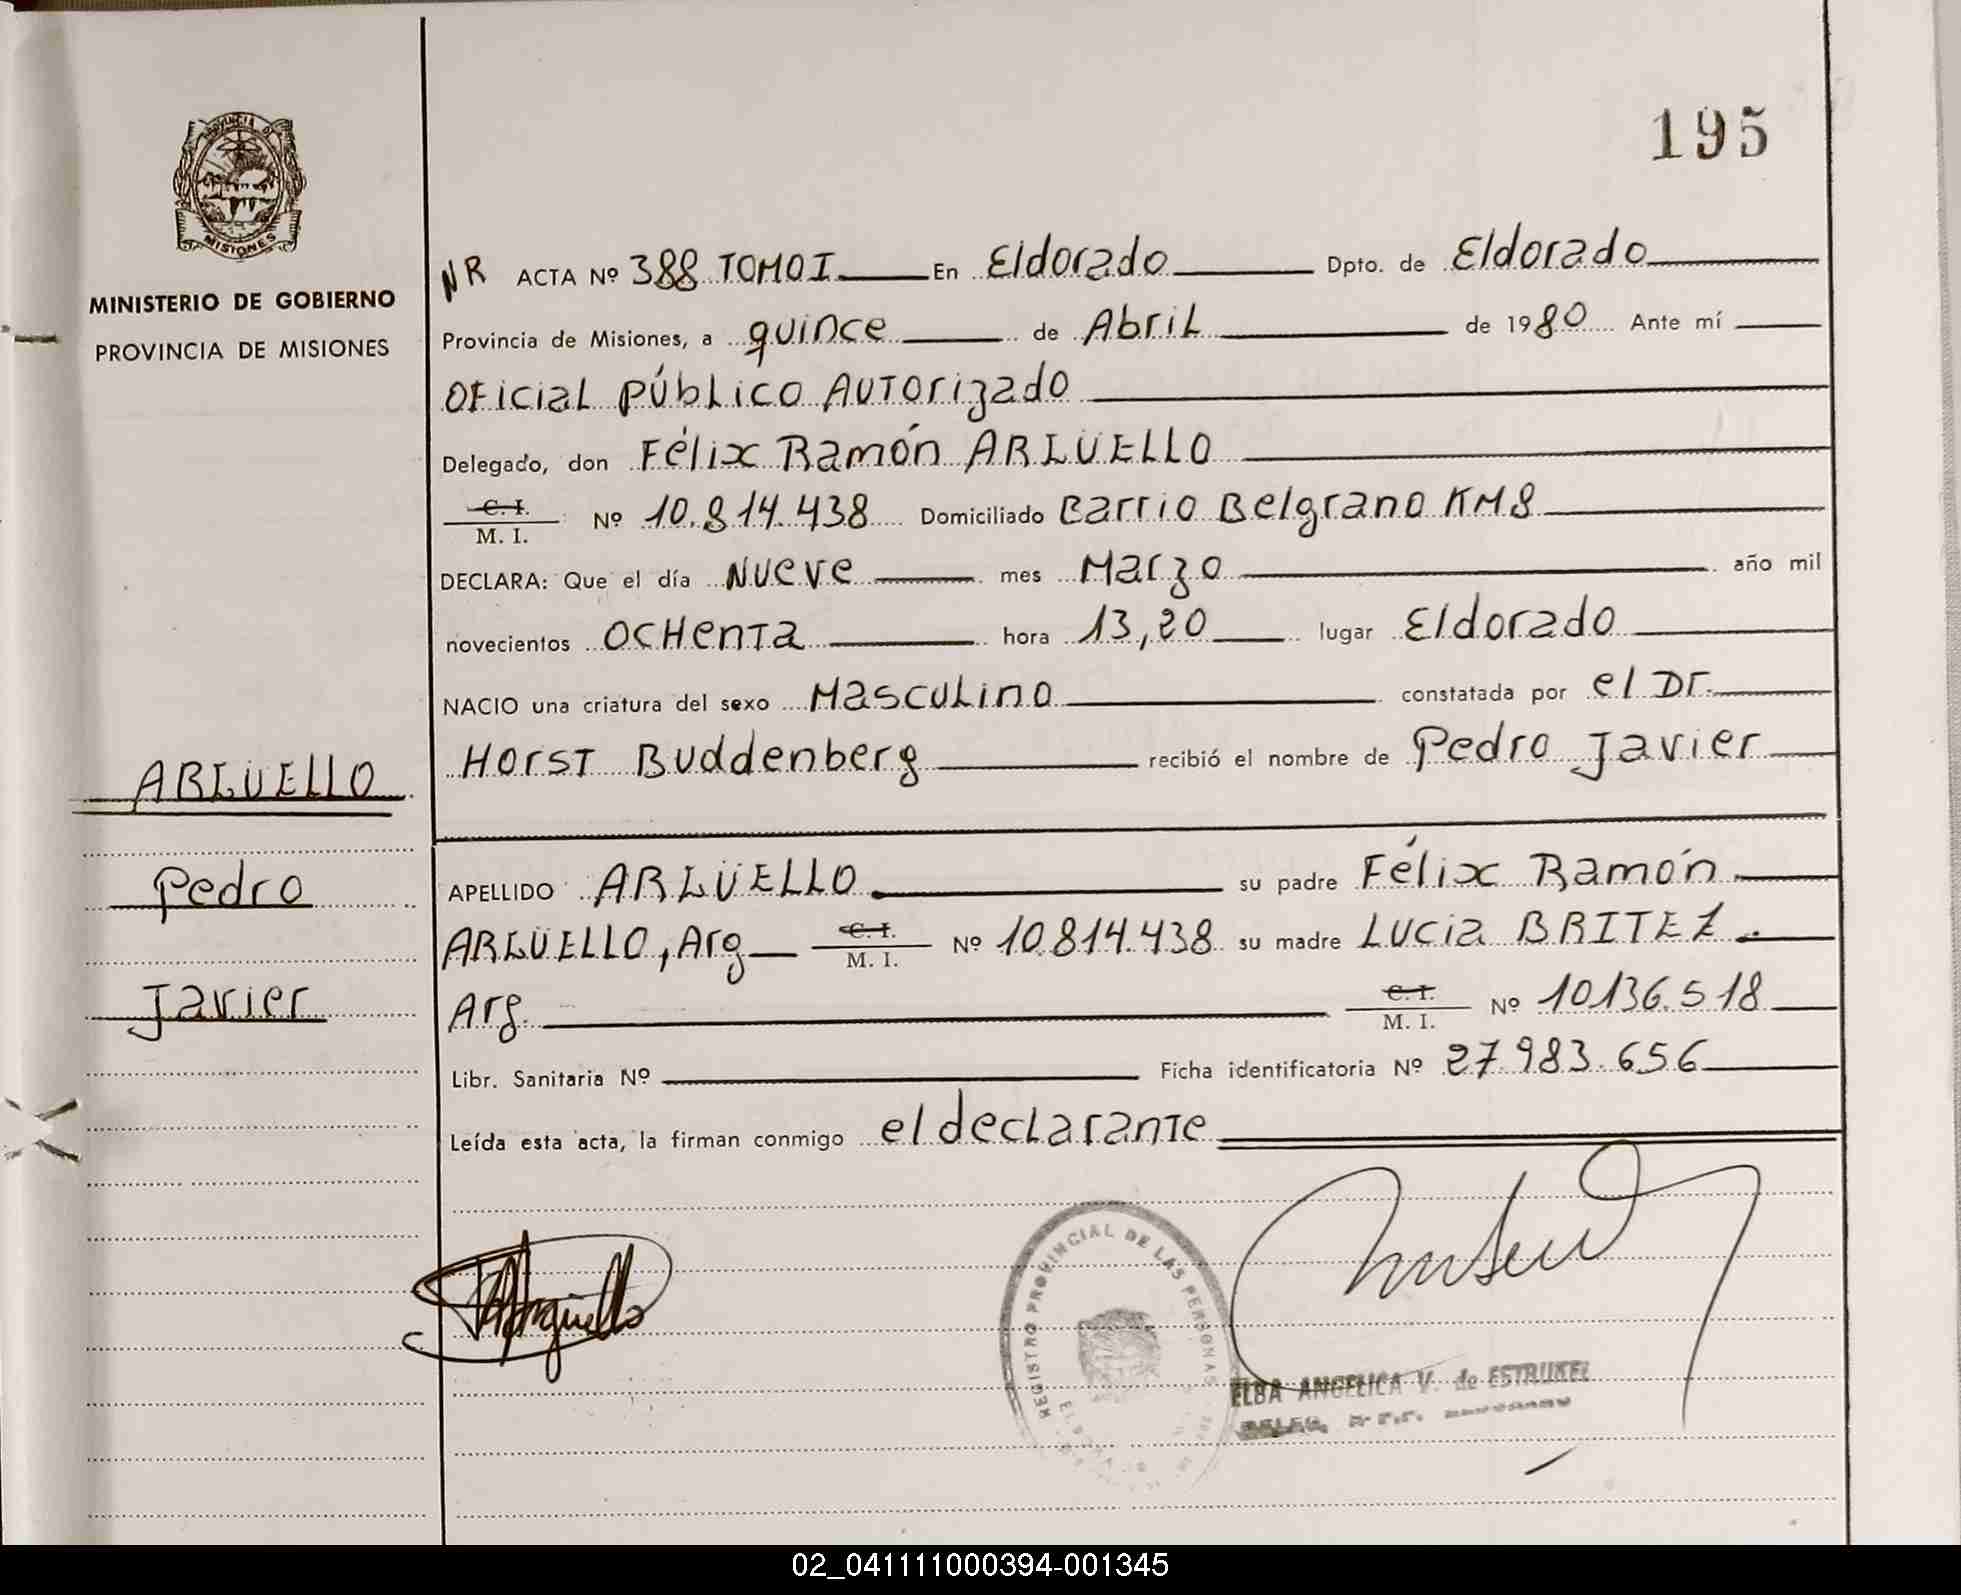 PROVINCIA DE
MISIONES
MINISTERIO DE GOBIERNO
PROVINCIA DE MISIONES
195
NR ACTA Nº 388 TOMO I En Eldorado Dpto. de Eldorado
Provincia de Misiones, a quince de Abril de 1980 Ante mí
Oficial Público Autorizado
Delegado, don Félix Ramón ARGÜELLO
C. I. / M. I. Nº 10.814.438 Domiciliado Barrio Belgrano KM8
DECLARA: Que el día Nueve mes Marzo año mil
novecientos ochenta hora 13,20 lugar Eldorado
NACIO una criatura del sexo Masculino constatada por el Dr.
Horst Buddenberg recibió el nombre de Pedro Javier
ARGÜELLO
Pedro
Javier
APELLIDO ARGÜELLO su padre Félix Ramón
ARGÜELLO, Arg C. I. / M. I. Nº 10.814.438 su madre Lucia BRITEZ
Arg. C. I. / M. I. Nº 10136.518
Libr. Sanitaria Nº Ficha identificatoria Nº 27.983.656
Leída esta acta, la firman conmigo el declarante
Argüello
REGISTRO PROVINCIAL DE LAS PERSONAS
ELBA ANGELICA V. de
02_041111000394-001345